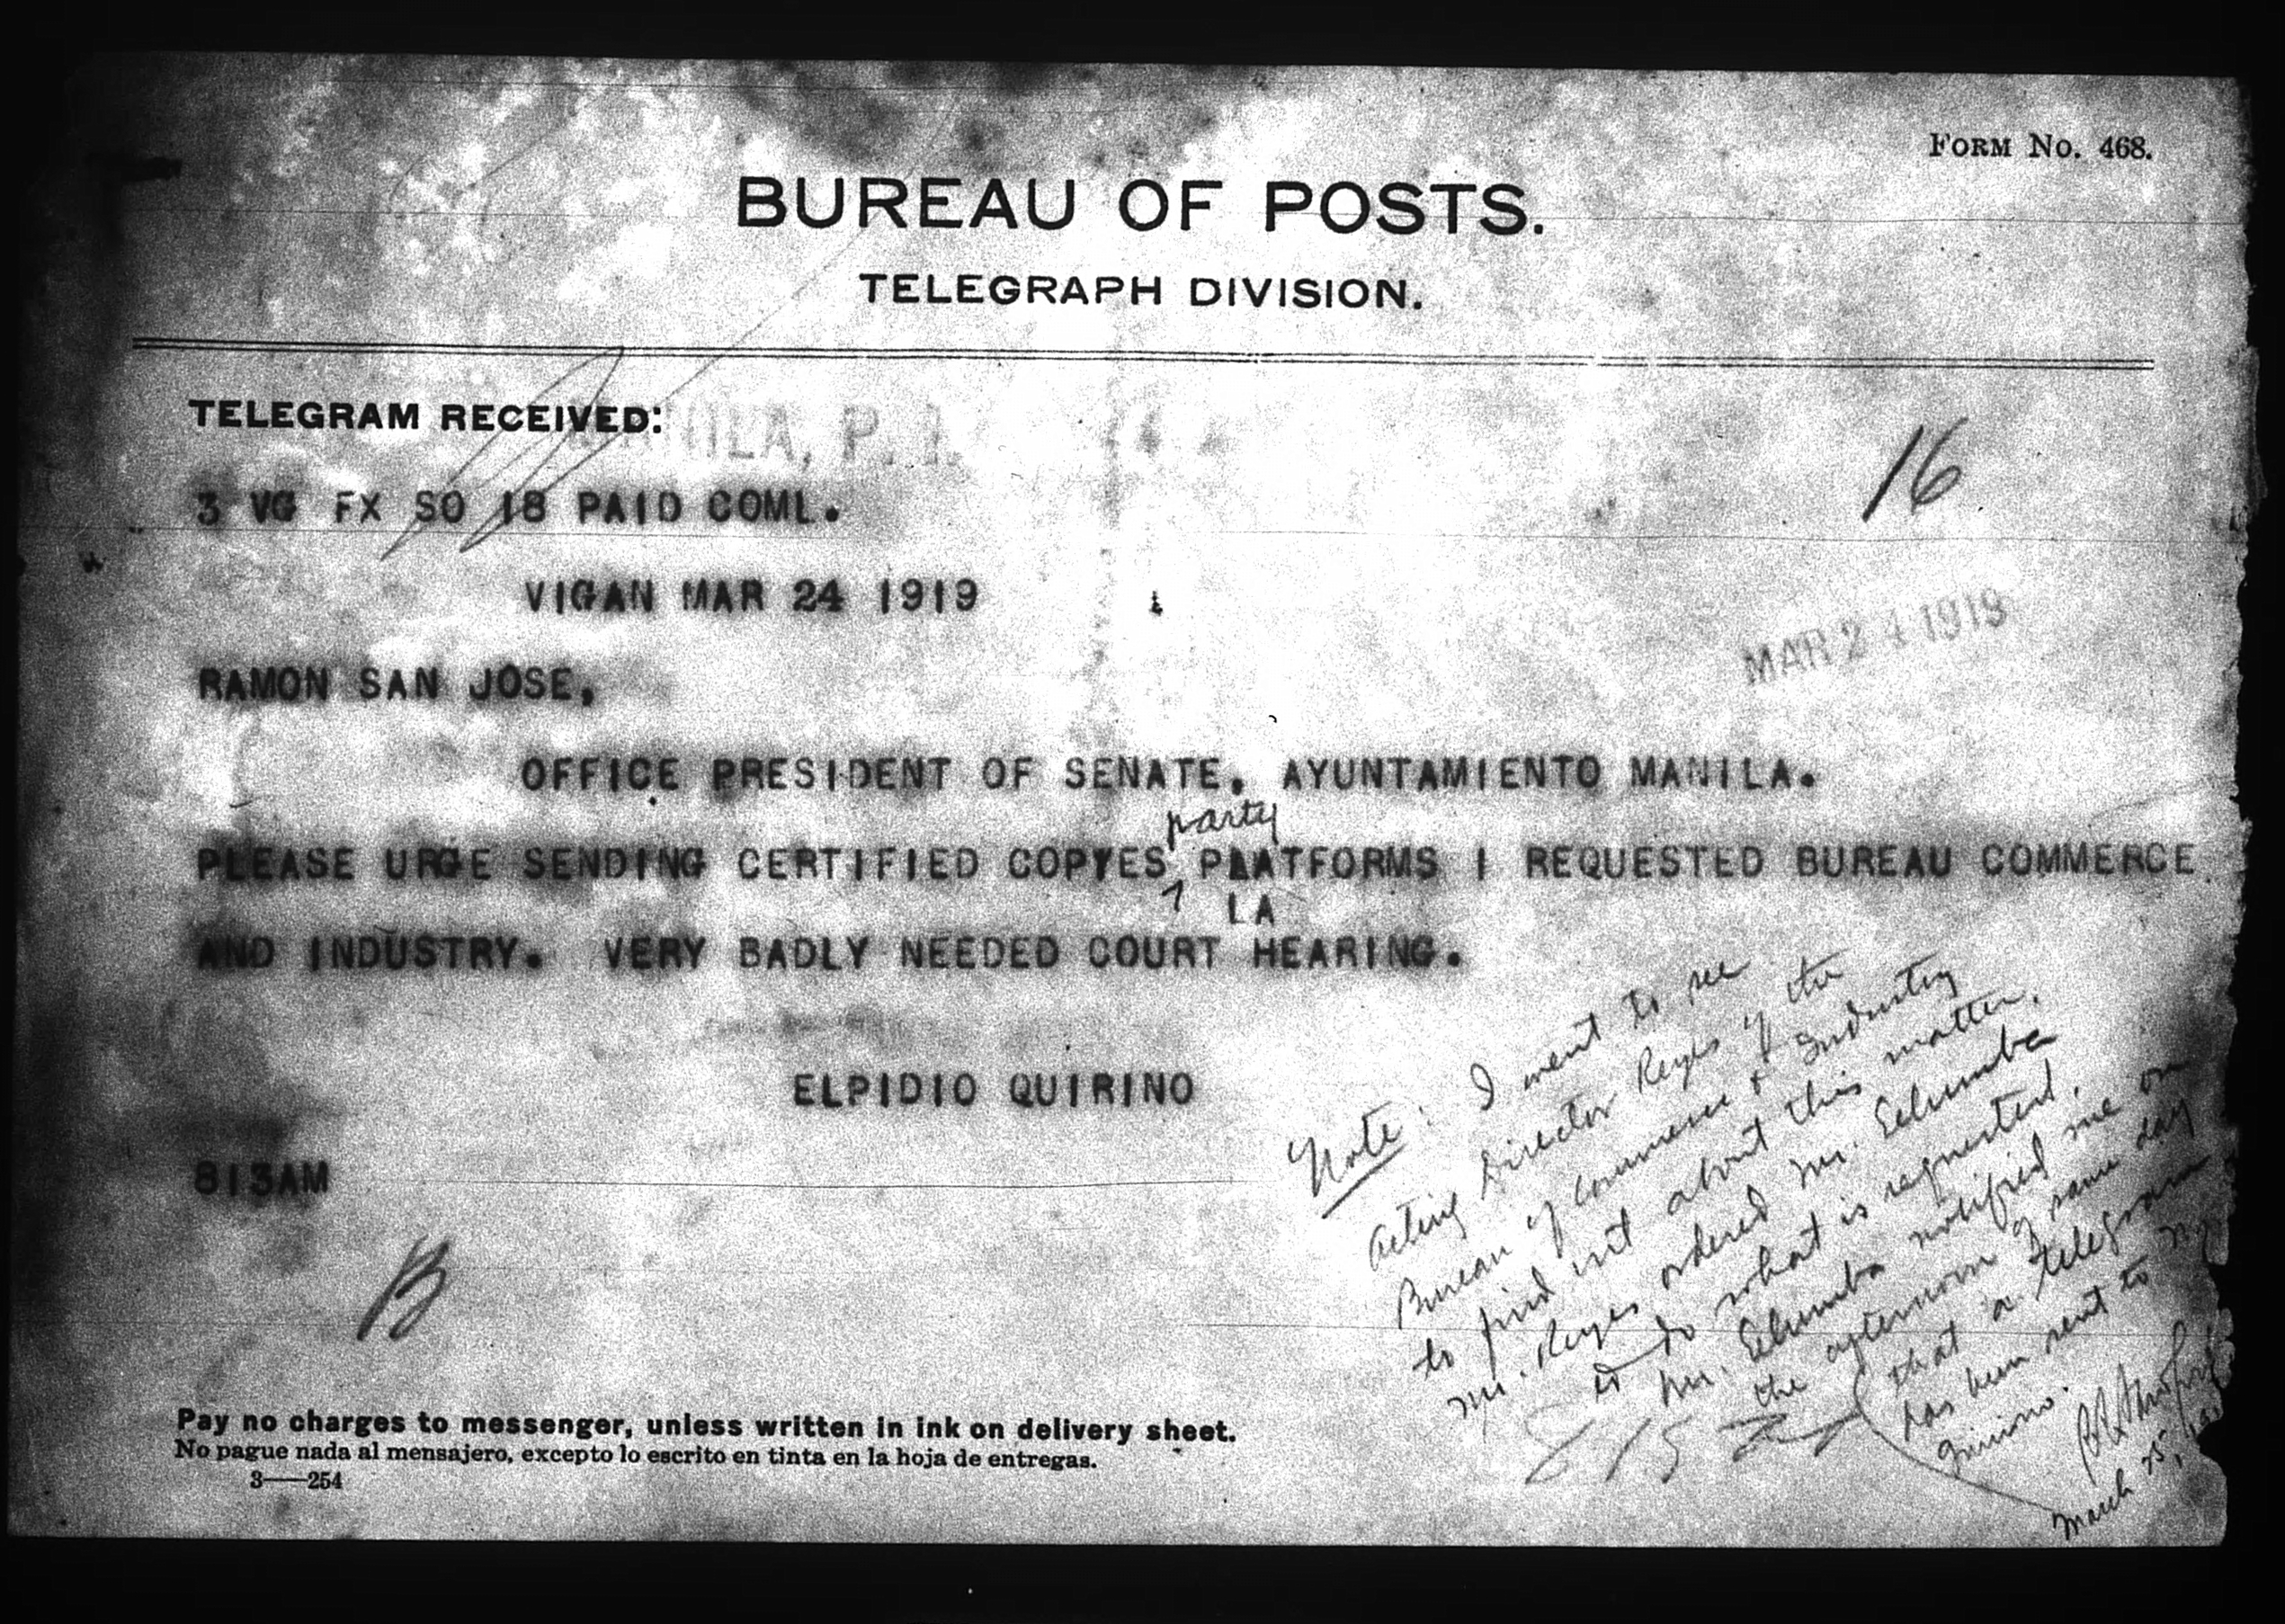 FORM No. 468.
BUREAU OF POSTS.
TELEGRAPH DIVISION.
TELEGRAM RECEIVED:
MANILA, P. I.
3 VG FX SO 18 PAID COML.
16
VIGAN MAR 24 1919
MAR 24 1919
RAMON SAN JOSE,
OFFICE PRESIDENT OF SENATE, AYUNTAMIENTO MANILA.
party
PLEASE URGE SENDING CERTIFIED COPYES PLATFORMS I REQUESTED BUREAU COMMERCE
LA
AND INDUSTRY. VERY BADLY NEEDED COURT HEARING.
ELPIDIO QUIRINO
813AM
B
Note: I went to see
Acting Director Reyes of the
Bureau of Commerce & Industry
to find out about this matter.
Mr. Reyes ordered Mr.
to do what is requested.
Mr. notified me on
the afternoon of same day
that a telegram
has been sent to
Quirino.
March 25,
Pay no charges to messenger, unless written in ink on delivery sheet.
No pague nada al mensajero, excepto lo escrito en tinta en la hoja de entregas.
3—254